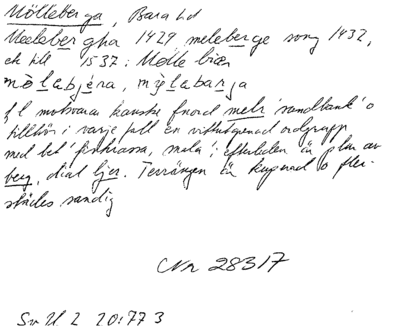 Mölleberga, Bara hd
Meelebergha 1429 meleberge song 1432,
1537: Mölle
mölabjéra, mölabarja
f l motsvarar kanske fnord melr 'sandbank' o
tillhör i varje fall en vittutgrenad ordgrupp
med bet 'finkrossa, mala'; efterleden är plur av
berg, dial bjer. Terrängen är kuperad o fler-
städes sandig
CNr 28317
Sv U 2 20:77 3